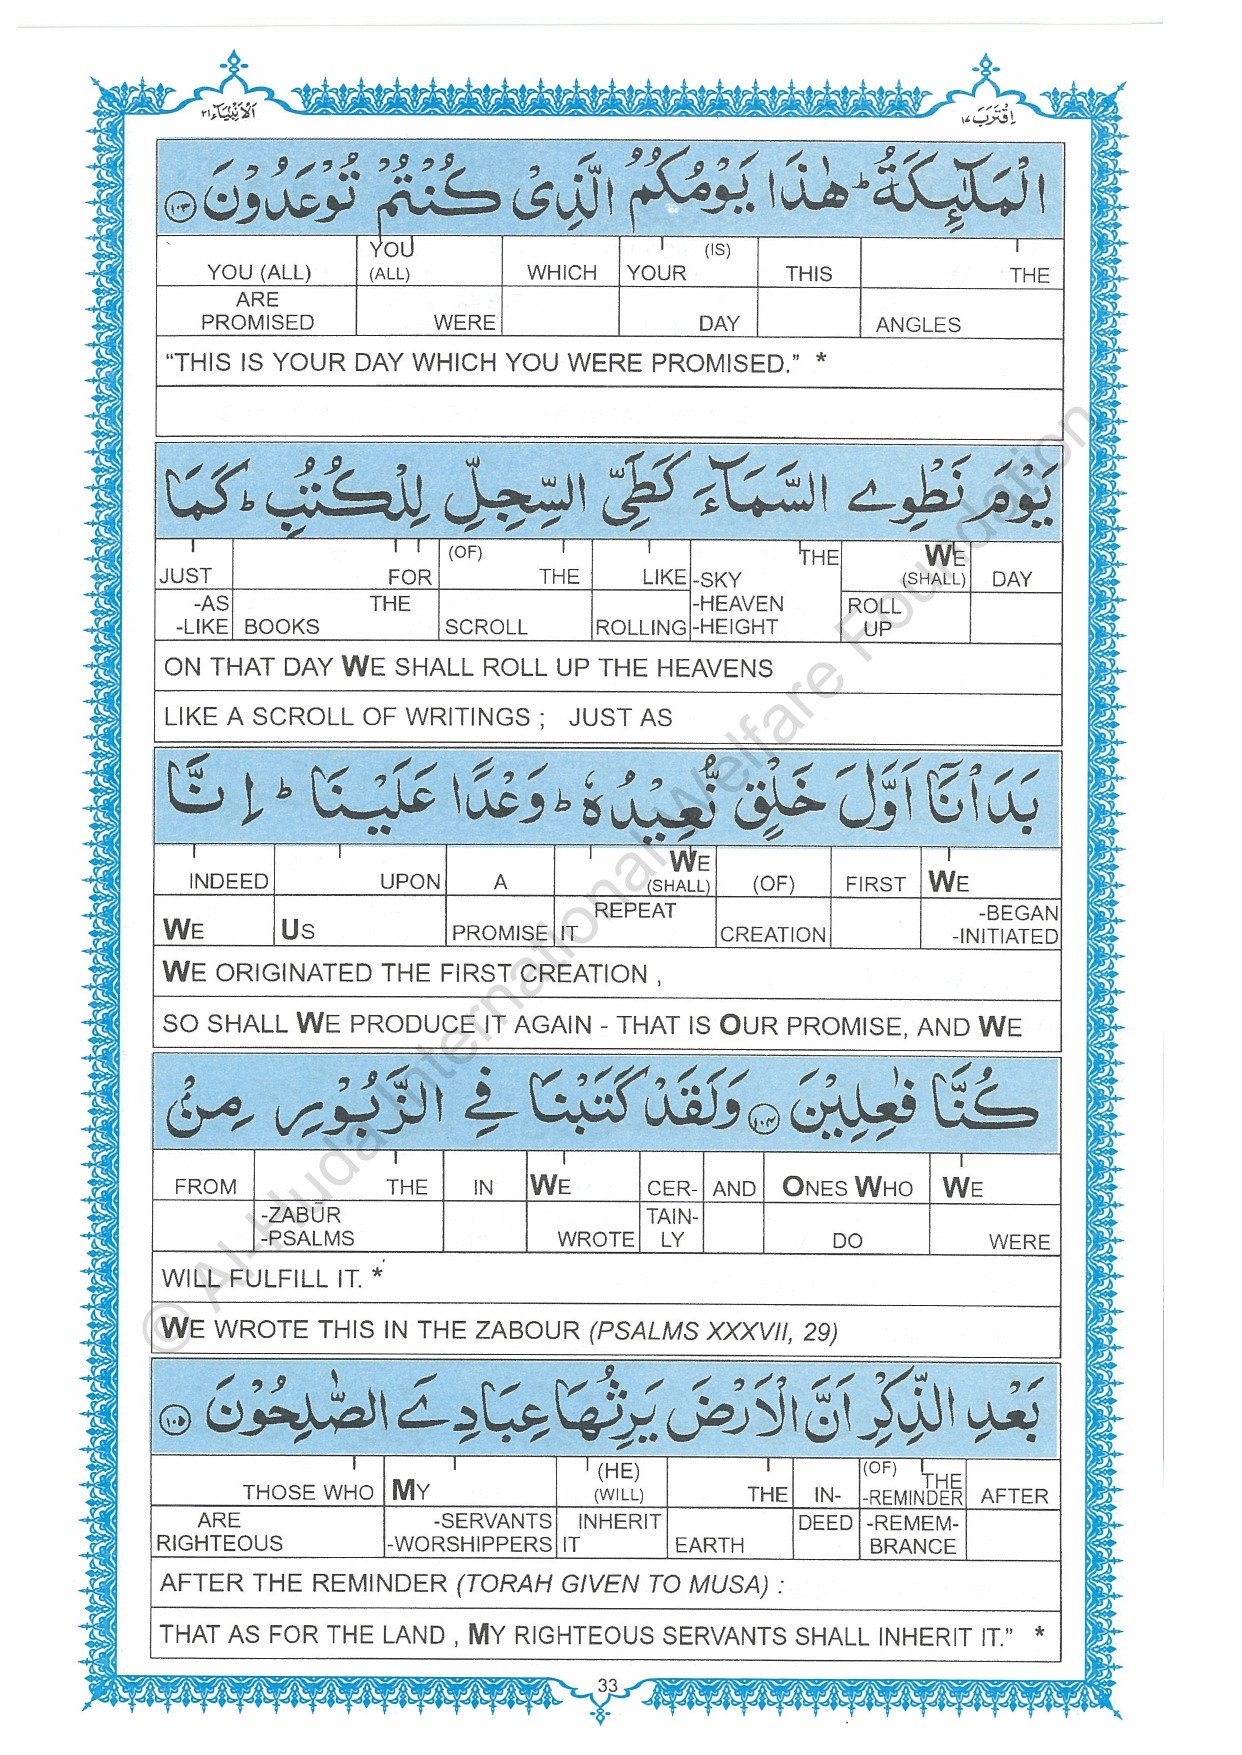 الْاَنْۢبِيَآء ٢١
اِقْتَرَبَ ١٧
الْمَلٰٓئِكَةُ ؕ هٰذَا يَوْمُكُمُ الَّذِىْ كُنْتُمْ تُوْعَدُوْنَ ١٠٣
YOU (ALL) YOU (ALL) WHICH YOUR (IS) THIS THE
ARE PROMISED WERE DAY ANGLES
“THIS IS YOUR DAY WHICH YOU WERE PROMISED.” *
يَوْمَ نَطْوِے السَّمَآءَ كَطَىِّ السِّجِلِّ لِلْكُتُبِ ؕ كَمَا
JUST FOR (OF) THE LIKE THE WE (SHALL) DAY
-AS -LIKE THE BOOKS SCROLL ROLLING -SKY -HEAVEN -HEIGHT ROLL UP
ON THAT DAY WE SHALL ROLL UP THE HEAVENS
LIKE A SCROLL OF WRITINGS ; JUST AS
بَدَاْنَاۤ اَوَّلَ خَلْقٍ نُّعِيْدُهٗ ؕ وَعْدًا عَلَيْنَا ؕ اِنَّا
INDEED UPON A WE (SHALL) (OF) FIRST WE
WE US PROMISE REPEAT IT CREATION -BEGAN -INITIATED
WE ORIGINATED THE FIRST CREATION ,
SO SHALL WE PRODUCE IT AGAIN - THAT IS OUR PROMISE, AND WE
كُنَّا فٰعِلِيْنَ ١٠٤ وَلَقَدْ كَتَبْنَا فِے الزَّبُوْرِ مِنْۢ
FROM THE IN WE CER- AND ONES WHO WE
-ZABŪR -PSALMS WROTE TAIN-LY DO WERE
WILL FULFILL IT. *
WE WROTE THIS IN THE ZABOUR (PSALMS XXXVII, 29)
بَعْدِ الذِّكْرِ اَنَّ الْاَرْضَ يَرِثُهَا عِبَادِےَ الصّٰلِحُوْنَ ١٠٥
THOSE WHO MY (HE) (WILL) THE IN- (OF) THE -REMINDER AFTER
ARE RIGHTEOUS -SERVANTS -WORSHIPPERS INHERIT IT EARTH DEED -REMEM-BRANCE
AFTER THE REMINDER (TORAH GIVEN TO MUSA) :
THAT AS FOR THE LAND , MY RIGHTEOUS SERVANTS SHALL INHERIT IT.” *
33
© Al-Huda International Welfare Foundation